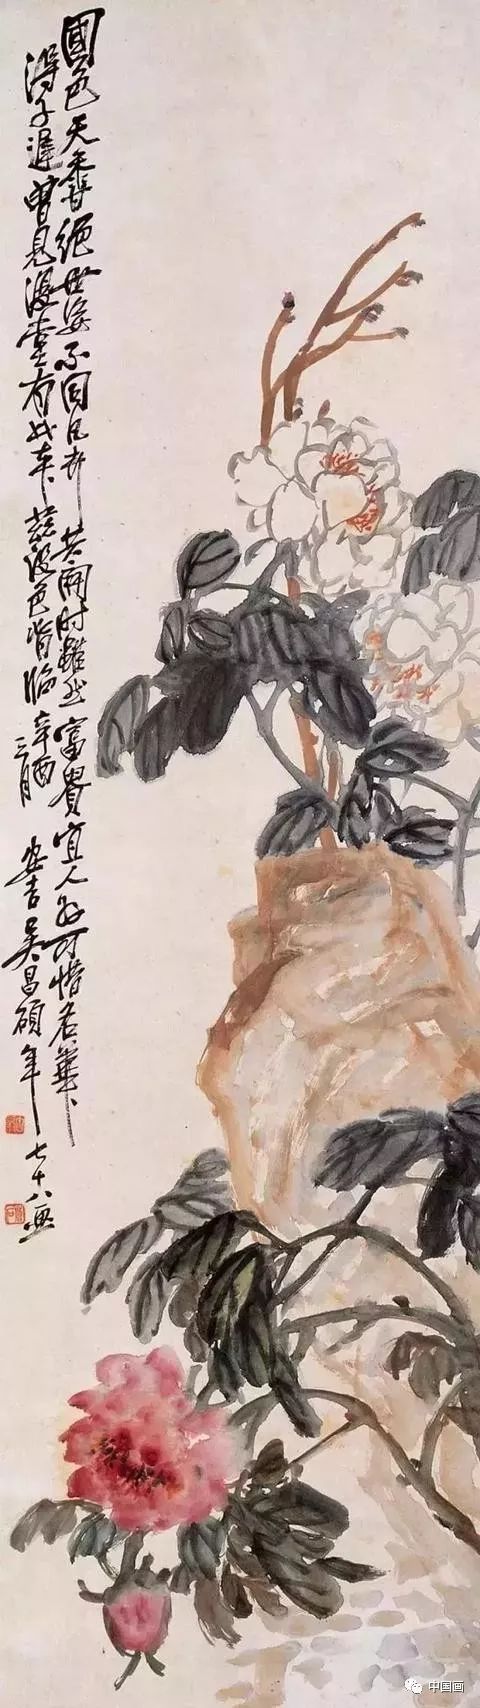 國色天香絕世姿不同凡卉共開時雖然富貴宜人可惜名華
得子遲曾見復堂有此本茲設色背臨辛酉
三月
安吉吳昌碩年七十八畫
中国画